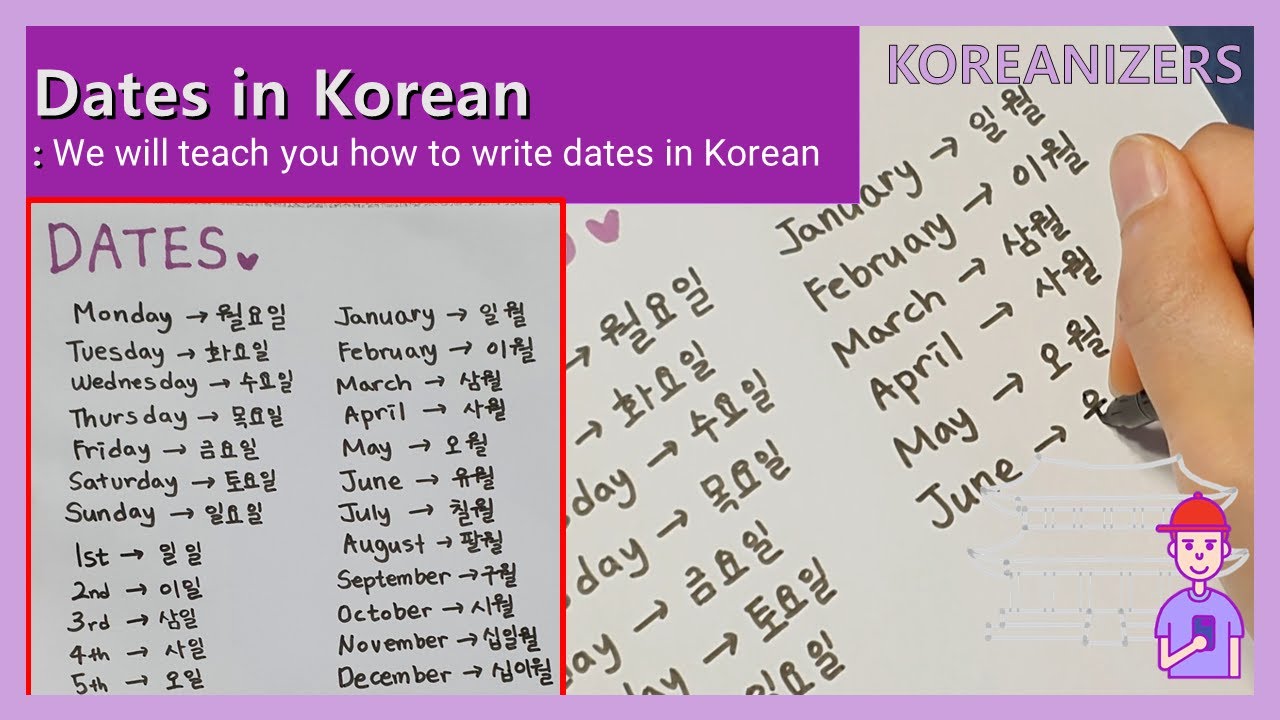 KOREANIZERS
Dates in Korean
: We will teach you how to write dates in Korean
DATES
Monday → 월요일
Tuesday → 화요일
Wednesday → 수요일
Thursday → 목요일
Friday → 금요일
Saturday → 토요일
Sunday → 일요일
1st → 일일
2nd → 이일
3rd → 삼일
4th → 사일
5th → 오일
January → 일월
February → 이월
March → 삼월
April → 사월
May → 오월
June → 유월
July → 칠월
August → 팔월
September → 구월
October → 시월
November → 십일월
December → 십이월
→ 월요일
→ 화요일
day → 수요일
day → 목요일
day → 금요일
→ 토요일
일요일
January → 일월
February → 이월
March → 삼월
April → 사월
May → 오월
June →